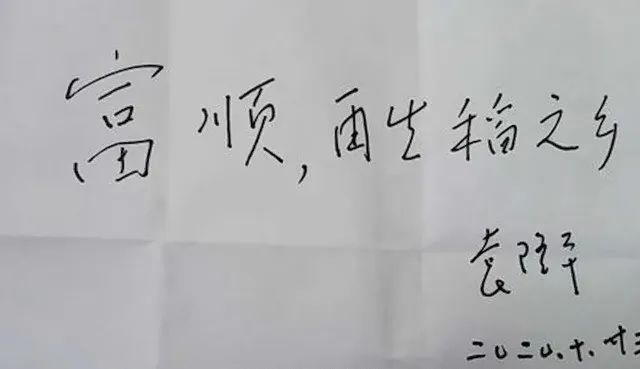 富顺，再生稻之乡
袁隆平
二〇二〇.十.廿三